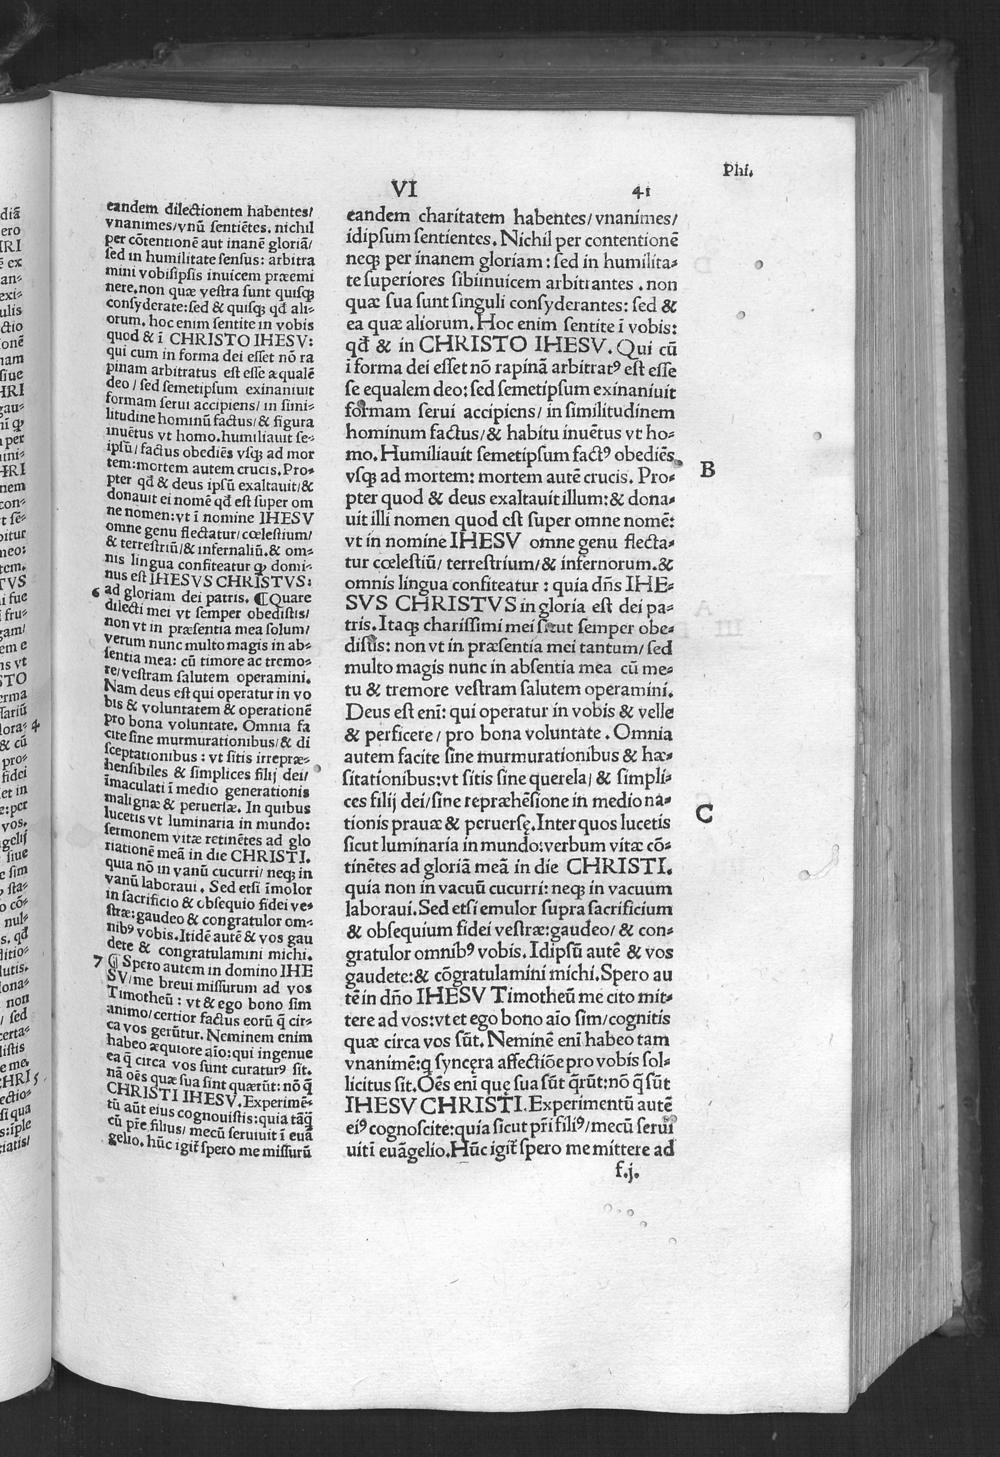 Phi.
VI 41
eandem dilectionem habentes/
vnanimes/vnū sentiētes. nichil
per cōtentionē aut inanē gloriā/
sed in humilitate sensus: arbitra
mini vobisipsis inuicem præemi
nere. non quæ vestra sunt quisqꝫ
consyderate: sed & quisqꝫ qđ ali⸗
orum. hoc enim sentite in vobis
quod & ī CHRISTO IHESV:
qui cum in forma dei esset nō ra
pinam arbitratus est esse æqualē
deo/sed semetipsum exinaniuit
formam serui accipiens/in simi⸗
litudine hominū factus/& figura
inuētus vt homo. humiliauit se⸗
ipsū/factus obediēs vsqꝫ ad mor
tem: mortem autem crucis. Pro⸗
pter qđ & deus ipsū exaltauit/&
donauit ei nomē qđ est super om
ne nomen: vt ī nomine IHESV
omne genu flectatur/cœlestium/
& terrestriū/& infernaliū. & om⸗
nis lingua confiteatur ꝙ domi⸗
nus est IHESVS CHRISTVS:
6 ad gloriam dei patris. ¶Quare
dilecti mei vt semper obedistis/
non vt in præsentia mea solum/
verum nunc multo magis in ab⸗
sentia mea: cū timore ac tremo⸗
re/vestram salutem operamini.
Nam deus est qui operatur in vo
bis & voluntatem & operationē
pro bona voluntate. Omnia fa
cite sine murmurationibus/& di
sceptationibus: vt sitis irrepræ⸗
hensibiles & simplices filij dei/
īmaculati ī medio generationis
malignæ & peruersæ. In quibus
lucetis vt luminaria in mundo:
sermonem vitæ retinētes ad glo
riationē meā in die CHRISTI.
quia nō in vanū cucurri/neqꝫ in
vanū laboraui. Sed etsi īmolor
in sacrificio & obsequio fidei ve⸗
stræ: gaudeo & congratulor om⸗
nibꝰ vobis. Itidē autē & vos gau
dete & congratulamini michi.
7 ¶ Spero autem in domino IHE
SV/me breui missurum ad vos
Timotheū: vt & ego bono sim
animo/certior factus eorū q̄ cir⸗
ca vos gerūtur. Neminem enim
habeo æquiore aīo: qui ingenue
ea q̄ circa vos sunt curaturꝰ sit.
nā oēs quæ sua sint quærūt: nō q̄
CHRISTI IHESV. Experimē⸗
tū aūt eius cognouistis: quia tāq̄
cū pr̄e filius/mecū seruiuit ī euā
gelio. hūc igit̄ spero me missurū
eandem charitatem habentes/vnanimes/
idipsum sentientes. Nichil per contentionē
neqꝫ per inanem gloriam: sed in humilita⸗
te superiores sibiinuicem arbitrantes. non
quæ sua sunt singuli consyderantes: sed &
ea quæ aliorum. Hoc enim sentite ī vobis:
qđ & in CHRISTO IHESV. Qui cū
ī forma dei esset nō rapinā arbitratꝰ est esse
se equalem deo: sed semetipsum exinaniuit
formam serui accipiens/in similitudinem
hominum factus/& habitu inuētus vt ho⸗
mo. Humiliauit semetipsum factꝰ obediēs
B
vsqꝫ ad mortem: mortem autē crucis. Pro⸗
pter quod & deus exaltauit illum: & dona⸗
uit illi nomen quod est super omne nomē:
vt in nomine IHESV omne genu flecta⸗
tur cœlestiū/terrestrium/& infernorum. &
omnis lingua confiteatur: quia dn̄s IHE⸗
SVS CHRISTVS in gloria est dei pa⸗
tris. Itaqꝫ charissimi mei sicut semper obe⸗
distis: non vt in præsentia mei tantum/sed
multo magis nunc in absentia mea cū me⸗
tu & tremore vestram salutem operamini.
Deus est enī: qui operatur in vobis & velle
& perficere/pro bona voluntate. Omnia
autem facite sine murmurationibus & hæ⸗
sitationibus: vt sitis sine querela/& simpli⸗
ces filij dei/sine repræhēsione in medio na⸗
C
tionis prauæ & peruersę. Inter quos lucetis
sicut luminaria in mundo: verbum vitæ cō⸗
tinētes ad gloriā meā in die CHRISTI.
quia non in vacuū cucurri: neqꝫ in vacuum
laboraui. Sed etsi emulor supra sacrificium
& obsequium fidei vestræ: gaudeo/& con⸗
gratulor omnibꝰ vobis. Idipsū autē & vos
gaudete: & cōgratulamini michi. Spero au
tē in dn̄o IHESV Timotheū me cito mit⸗
tere ad vos: vt et ego bono aīo sim/cognitis
quæ circa vos sūt. Neminē enī habeo tam
vnanimē: q̨ syncęra affectiōe pro vobis sol⸗
licitus sit. Oēs enī quę sua sūt q̄rūt: nō q̄ sūt
IHESV CHRISTI. Experimentū autē
eiꝰ cognoscite: quia sicut pr̄i filiꝰ/mecū serui
uit ī euāgelio. Hūc igit̄ spero me mittere ad
f.j.